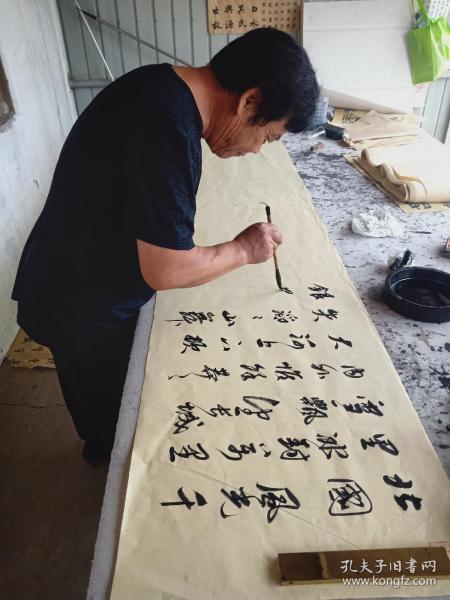 北國風光千
里冰封万里
雪飄望长城
内外惟余莽々
大河上下顿
失滔々山舞
银
孔夫子旧书网
www.kongfz.com